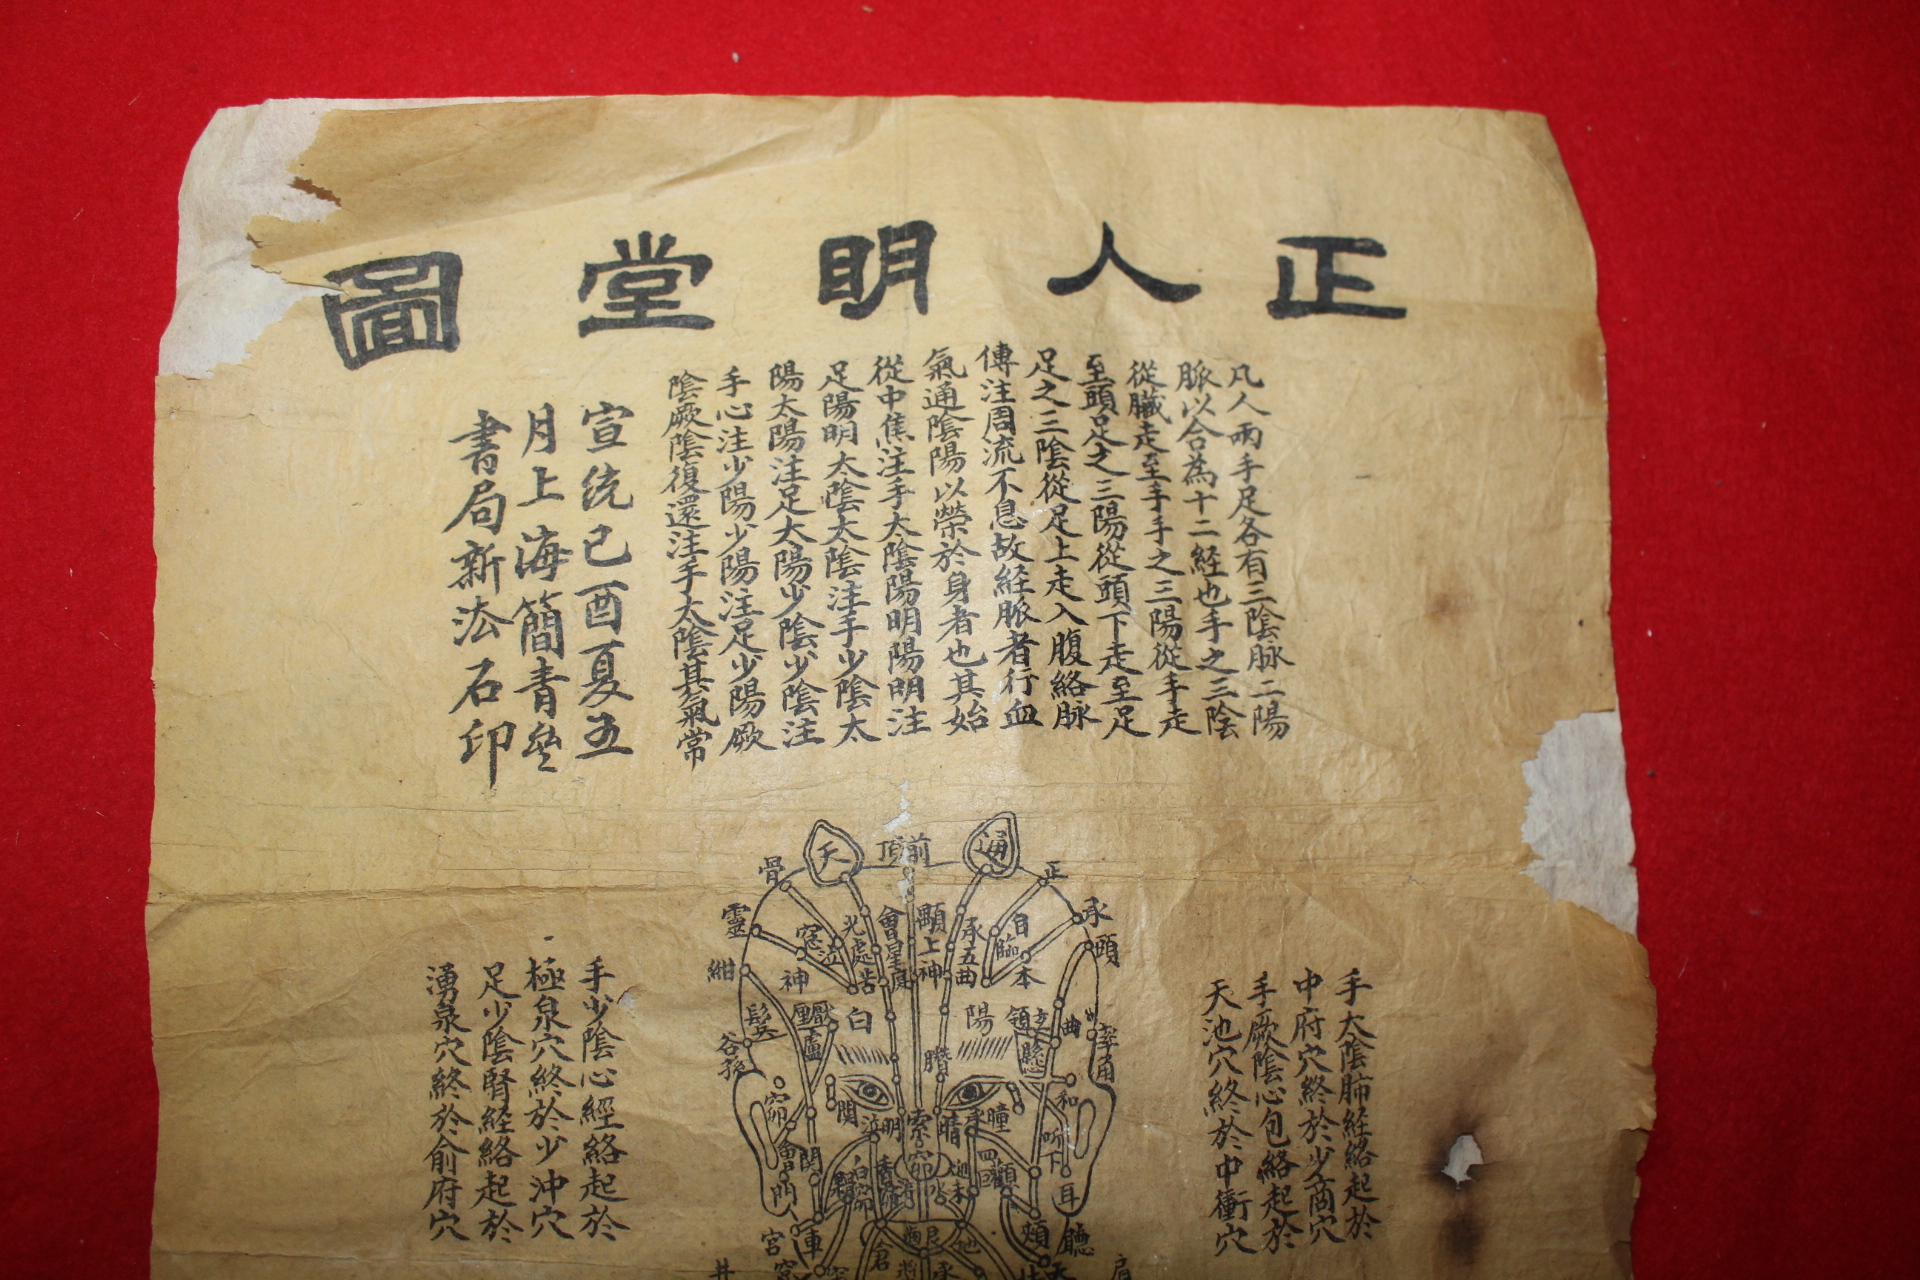 正人明堂圖
凡人兩手足各有三陰脉二陽
脈以合為十二経也手之三陰
從臟走至手手之三陽從手走
至頭足之三陽從頭下走至足
足之三陰從足上走入腹絡脉
傳注周流不息故経脈者行血
氣通陰陽以榮於身者也其始
從中焦注手太陰陽明陽明注
足陽明太陰太陰注手少陰太
陽太陽注足太陽少陰少陰注
手心注少陽少陽注足少陽厥
陰厥陰復還注手太陰其氣常
宣统己酉夏五
月上海簡青
書局新法石印
天
頂前
通
骨
正
靈
承
紺
神
窓
光
處
會
星
顖
上
神
承
五
曲
目
臨
本
白
陽
頷
曲
率
谷
和
聽
耳
關
明
睛
瞳
下
門
車
宮
井
肩
手太陰肺経絡起於
中府穴終於少商穴
手厥陰心包絡起於
天池穴終於中衝穴
手少陰心經絡起於
極泉穴終於少沖穴
足少陰腎経絡起於
湧泉穴終於俞府穴